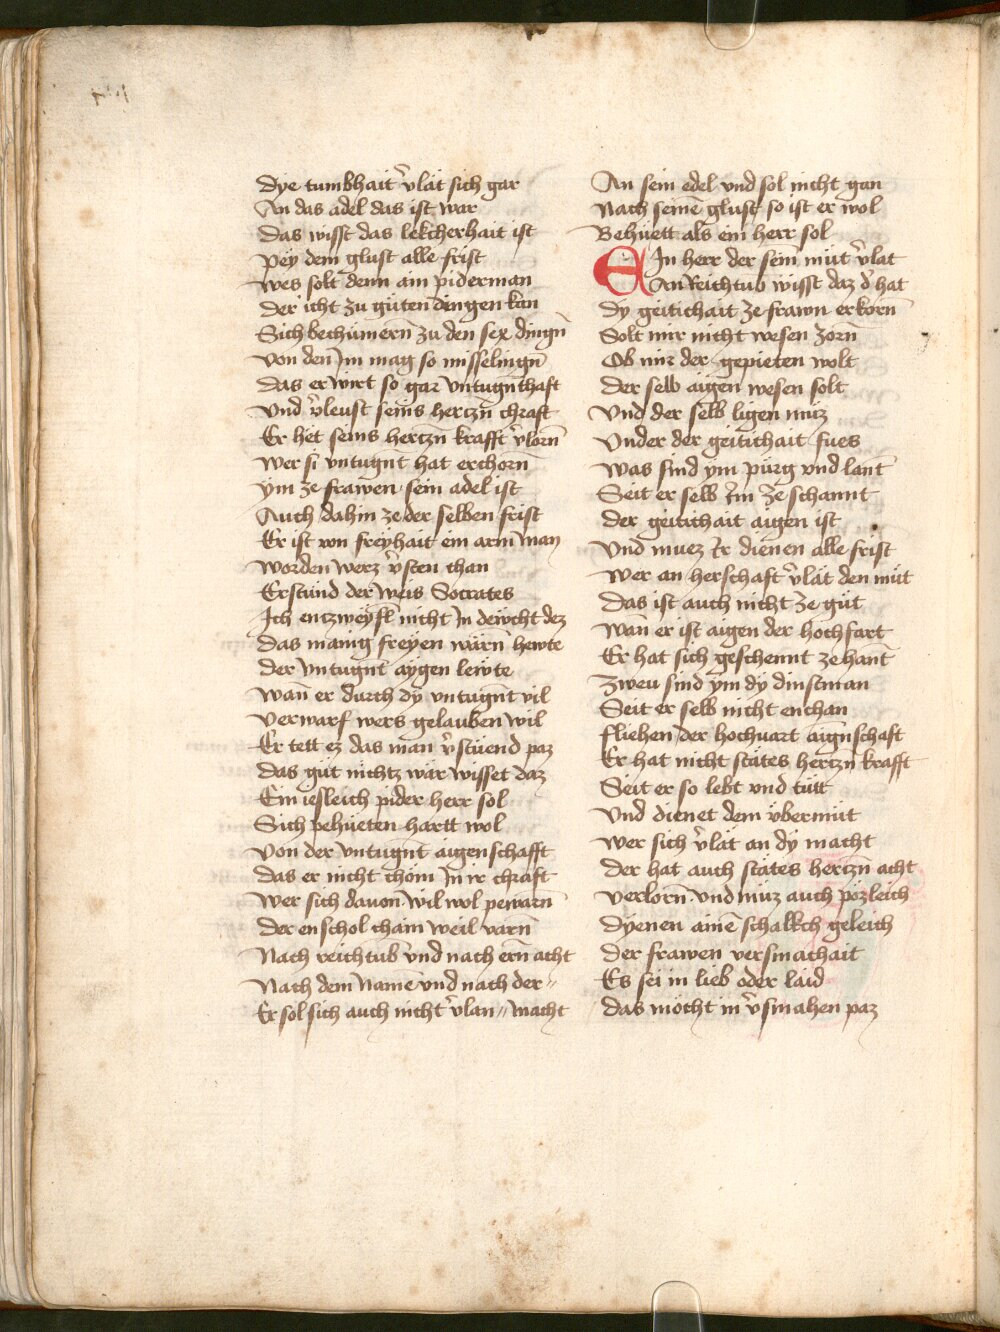 Dye tumbhait v̉lat sich gar
An das adel das ist war
Das wisst das lekcherhait ist
Pey dem glust alle frist
Wes solt denn ain piderman
Der icht zu güten dingen kan
Sich bechümern̄ zu den sex dingn̄
Von den Im mag so misselingn̄
Das er wirt so gar vntugn̄thaft
Vnd v̉leust seins hertzn̄ chraft
Er het seins hertzn̄ krafft v̉lorn̄
Wer si vntugn̄t hat erchorn̄
ẏm ze frawen sein adel ist
Auch dahin ze der selben frist
Er ist von freyhait ein arm man
Worden werz v̉sten chan
Erstünd der weis Socrates
Ich entzweyfl nicht In dewcht dez
Das manig freyen wärn̄ hewte
Der vntugn̄t aygen lewte
Wan̄ er durch dy vntugn̄t vil
Verwarf wers gelauben wil
Er tett ez das man v̉stüend paz
Das güt nichtz wär wisset daz
Ein iesleich pider herr sol
Sich pehüeten hartt wol
Von der vntugn̄t aigenschafft
Das er nicht chöm In ir chraft
Wer sich dauon wil wol pewarn̄
Der enschol chain weil varn̄
Nach reichtub vnd nach ern̄ acht
Nach dem Namē vnd nach der〃
Er sol sich auch nicht v̉lan〃macht
An sein edel vnd sol nicht gan
Nach seinē glust so ist er wol
Behüett als ein herr sol
EIn herr der sein̄ müt v̉lat
An Reichtub wisst daz d̉ hat
Dy geitichait ze frawn erkorn̄
Solt mir nicht wesen zorn̄
Ob mir der gepieten wolt
Der selb aigen wesen solt
Vnd der selb ligen müz
Vnder der geitichait fues
Was sind ym pürg vnd lant
Seit er selb Im ze schannt
Der geitichait aigen ist
Vnd muez Ir dienen alle frist
Wer an herschaft v̉lät den müt
Das ist auch nicht ze güt
Wan̄ er ist aigen der hochfart
Er hat sich geschennt ze hant
Zweu sind ym dy dinstman
Seit er selb nicht enchan
Fliehen der hochuart aign̄schaft
Er hat nicht stätes hertzn̄ krafft
Seit er so lebt vnd tütt
Vnd dienet dem v̈bermüt
Wer sich v̉lät an dy macht
Der hat auch stätes hertzn̄ acht
Verlorn̄ vnd müz auch pözleich
Dyenen ainē schalkch geleich
Der frawen versmachait
Es sei in lieb oder laid
Das möcht in v̉smahen paz